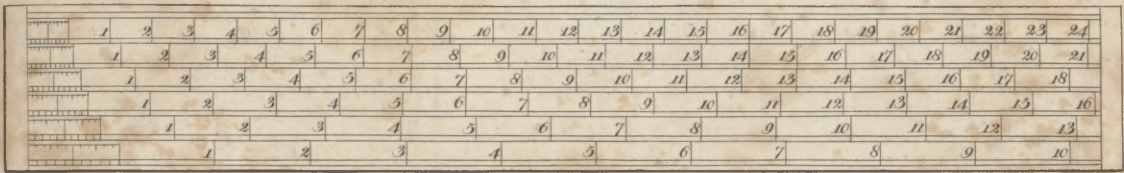 1 2 3 4 5 6 7 8 9 10 11 12 13 14 15 16 17 18 19 20 21 22 23 24
1 2 3 4 5 6 7 8 9 10 11 12 13 14 15 16 17 18 19 20 21
1 2 3 4 5 6 7 8 9 10 11 12 13 14 15 16 17 18
1 2 3 4 5 6 7 8 9 10 11 12 13 14 15 16
1 2 3 4 5 6 7 8 9 10 11 12 13
1 2 3 4 5 6 7 8 9 10